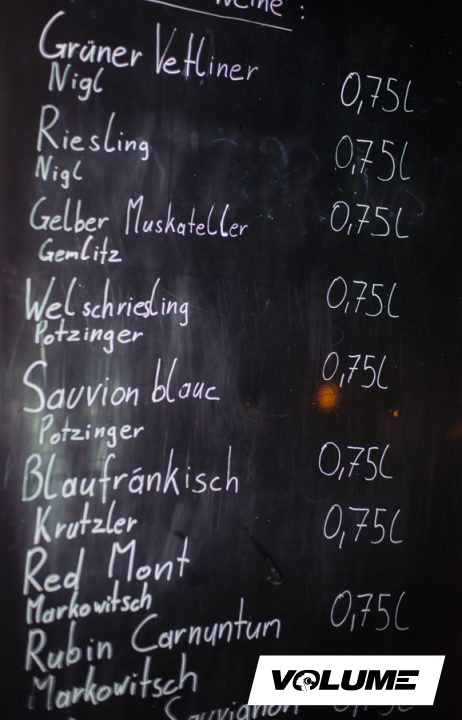 Weine:
Grüner Vetliner
Nigl 0,75l
Riesling
Nigl 0,75l
Gelber Muskateller 0,75l
Gemlitz
Welschriesling 0,75l
Potzinger
Sauvion blauc 0,75l
Potzinger
Blaufránkisch 0,75l
Krutzler
Red Mont 0,75l
Markowitsch
Rubin Carnuntum 0,75l
Markowitsch
Sauvignon
VOLUME